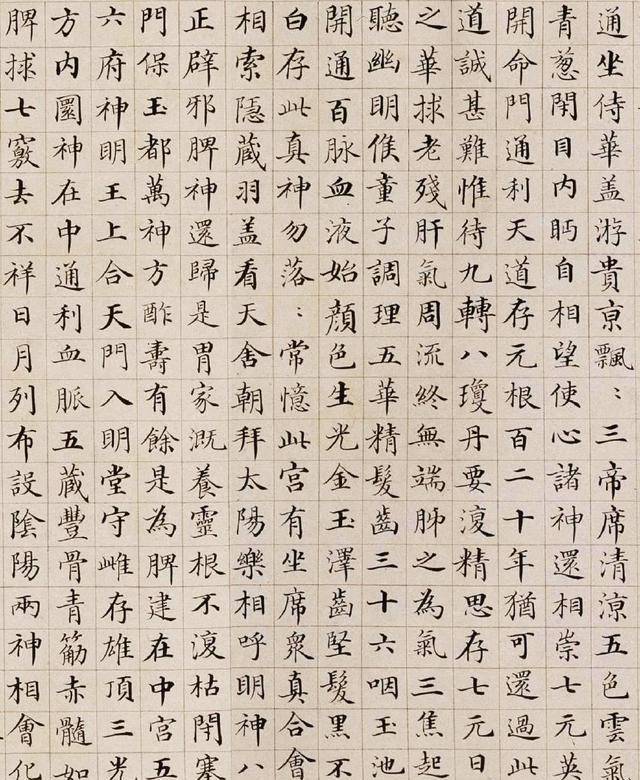 通坐侍華盖游貴亰飄〻三帝席清涼五色雲氣
青葱閇目内眄自相望使心諸神還相崇七元英
開命門通利天道存元根百二十年猶可還過此
道誠甚難惟待九轉八瓊丹要復精思存七元日
之華捄老殘肝氣周流終無端肺之為氣三焦起
聽幽明候童子調理五華精髮齒三十六咽玉池
開通百脉血液始顔色生光金玉澤齒堅髮黑不
白存此真神勿落〻常憶此宮有坐席衆真合會
相索隱藏羽盖看天舍朝拜太陽樂相呼明神八
正辟邪脾神還歸是胃家溉養靈根不復枯閇塞
門保玉都萬神方酢壽有餘是為脾建在中宮五
六府神明王上合天門入明堂守雌存雄頂三光
方内圓神在中通利血脈五藏豐骨青筋赤髓如
脾捄七竅去不祥日月列布設陰陽兩神相會化